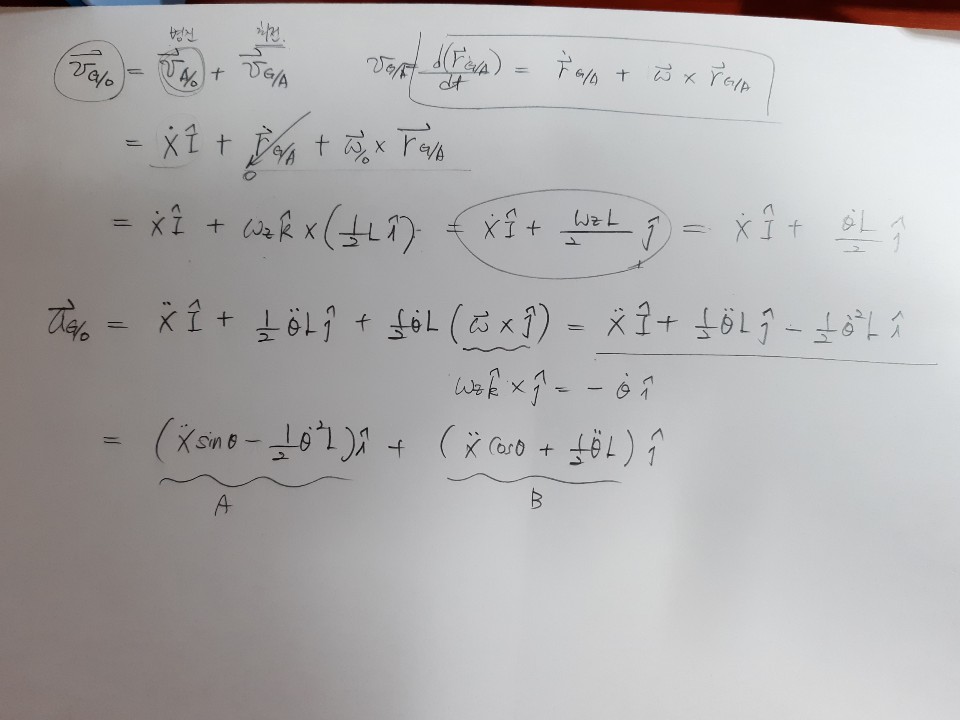 병진 회전.
\vec{v}_{G/O} = \vec{v}_{A/O} + \vec{v}_{G/A} v_{G/A} = \frac{d(\vec{r}_{G/A})}{dt} = \dot{r}_{G/A} + \vec{ω} × \vec{r}_{G/A}
= \dot{X}\hat{I} + \dot{r}_{G/A} + \vec{ω}_{/O} × \vec{r}_{G/A}
0
= \dot{X}\hat{I} + ω_z\hat{k} × (\frac{1}{2}L\hat{i}) = \dot{X}\hat{I} + \frac{ω_z L}{2}\hat{j} = \dot{X}\hat{I} + \frac{\dot{θ}L}{2}\hat{j}
\vec{a}_{G/O} = \ddot{X}\hat{I} + \frac{1}{2}\ddot{θ}L\hat{j} + \frac{1}{2}\dot{θ}L(\vec{ω} × \hat{j}) = \ddot{X}\hat{I} + \frac{1}{2}\ddot{θ}L\hat{j} - \frac{1}{2}\dot{θ}^2L\hat{i}
ω_z\hat{k} × \hat{j} = - \dot{θ}\hat{i}
= (\ddot{X}sinθ - \frac{1}{2}\dot{θ}^2L)\hat{i} + (\ddot{X}cosθ + \frac{1}{2}\ddot{θ}L)\hat{j}
A B